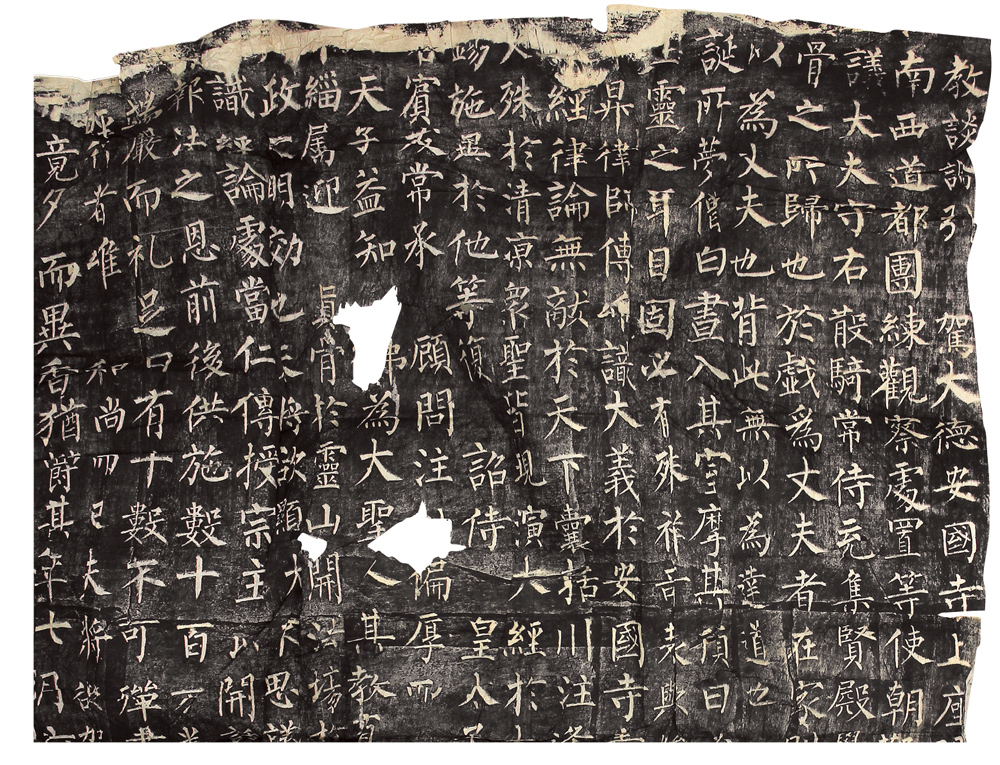 教談論引駕大德安國寺上座
南西道都團練觀察處置等使朝
議大夫守右散騎常侍充集賢殿
骨之所歸也於戲為丈夫者在家
以為丈夫也背此無以為達道也
誕所夢僧白晝入其室摩其頂曰
靈之耳目固必有殊祥奇表與
昇律師傳唯識大義於安國寺
經律論無敵於天下囊括川注逢
人殊於清涼衆聖皆現演大經於
錫施異於他等復詔侍皇太子
賓友常承顧問注偏厚而
天子益知為大聖人其教有
緇属迎真骨於靈山開法場於
政之明效也將欲顯大不思議
識經論處當仁傳授宗主以開
報法之恩前後供施數十百万
端嚴而礼足曰有十數不可殫書
經行者唯和尚而已夫將欲駕
竟夕而異香猶鬱其年七月